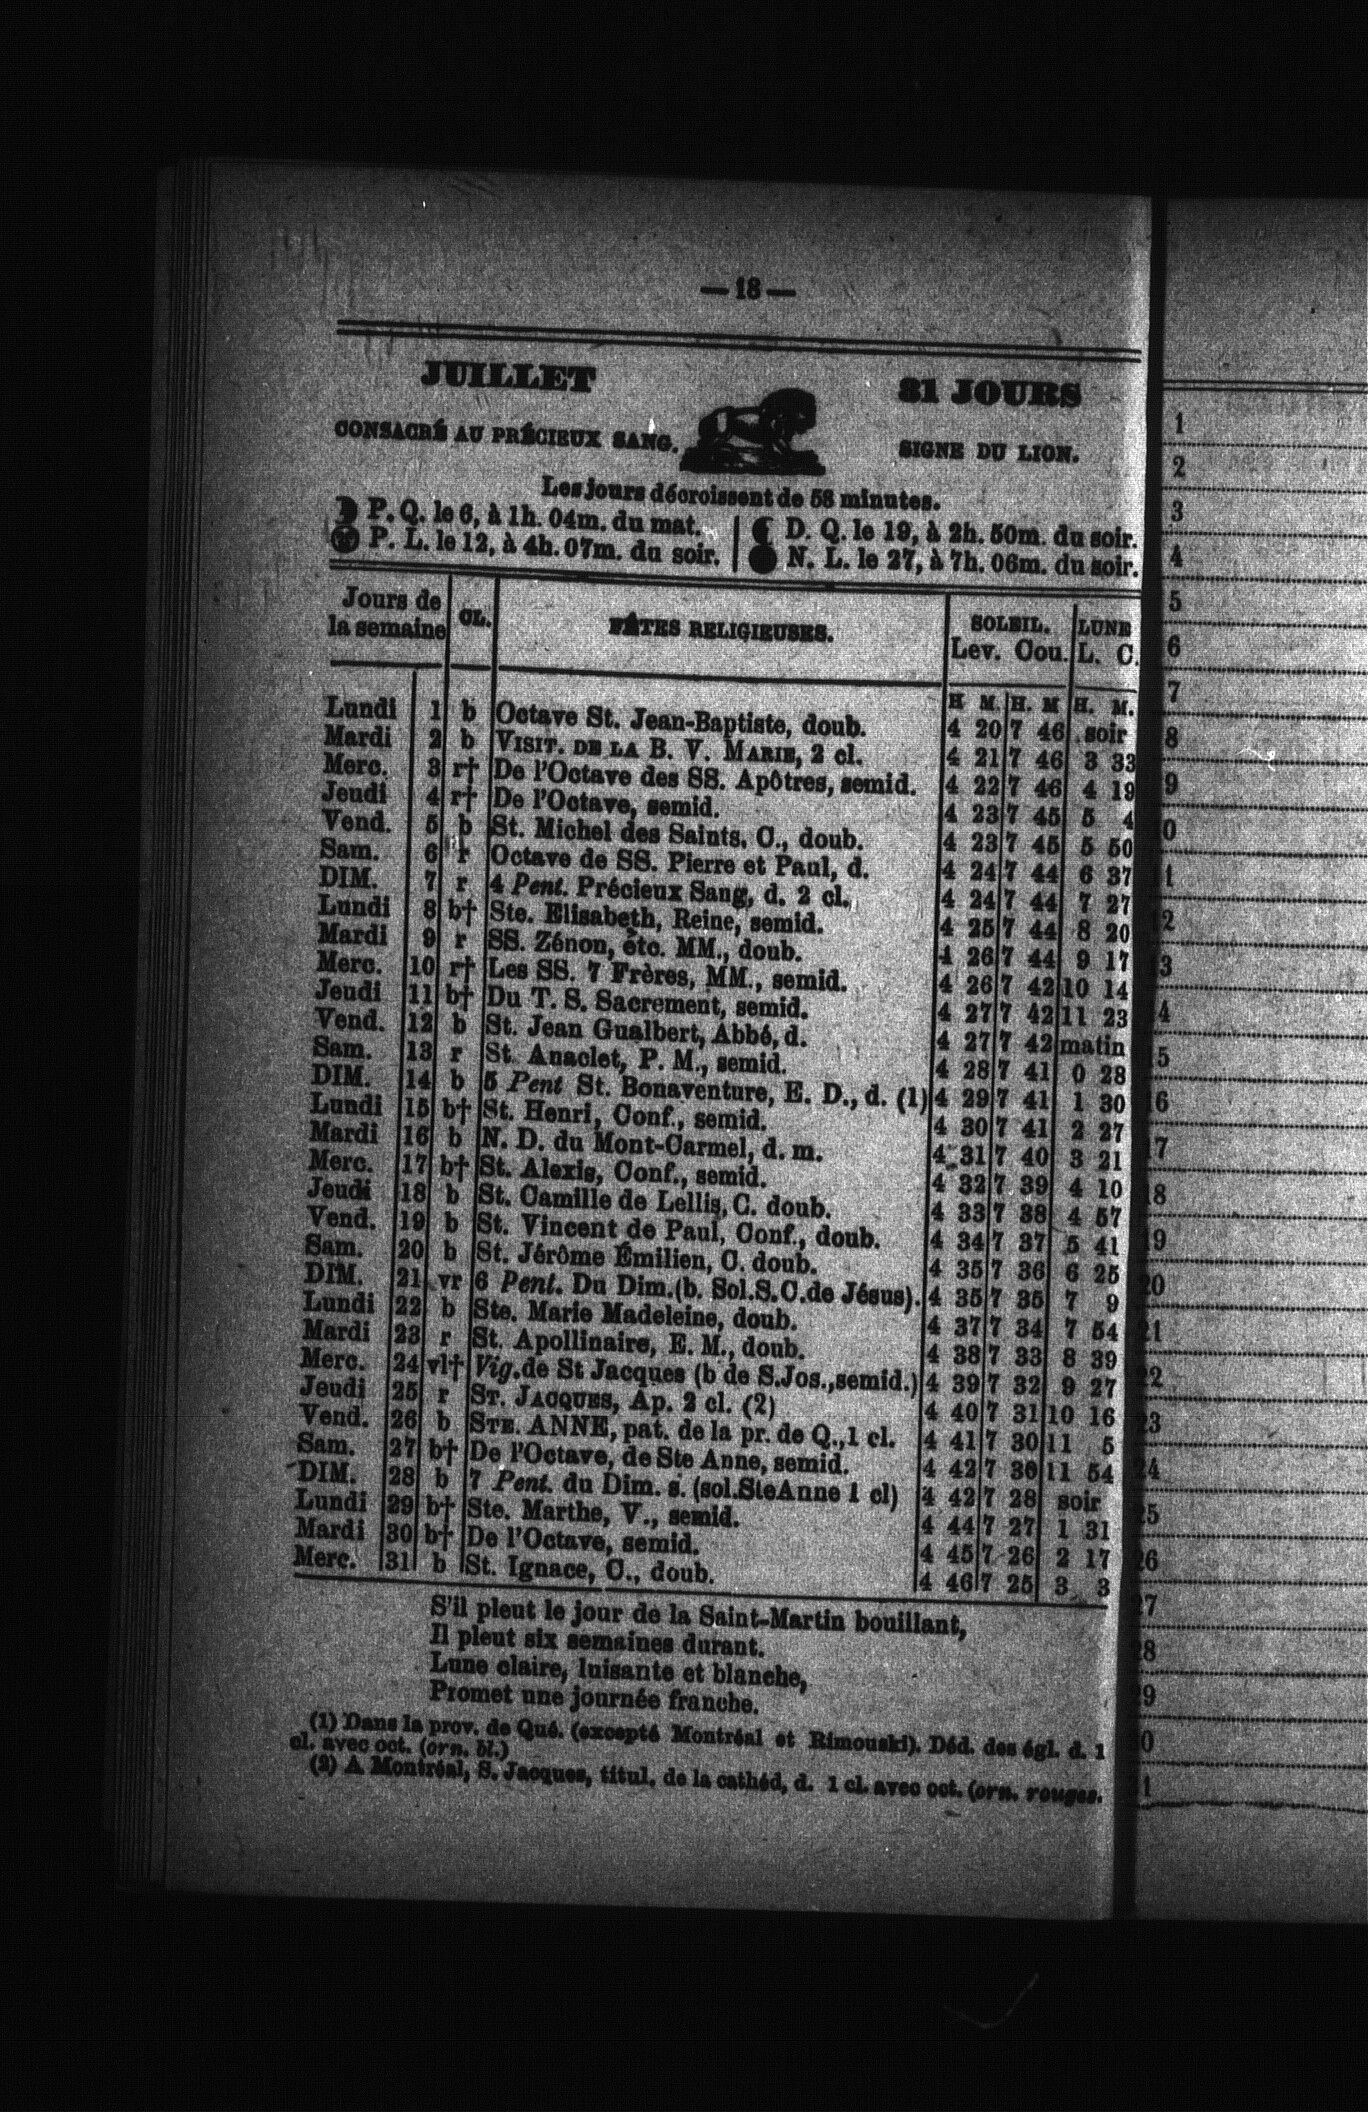 — 18 —
JUILLET 31 JOURS
CONSACRÉ AU PRÉCIEUX SANG. SIGNE DU LION.
Les jours décroissent de 58 minutes.
P. Q. le 6, à 1h. 04m. du mat. D. Q. le 19, à 2h. 50m. du soir.
P. L. le 12, à 4h. 07m. du soir. N. L. le 27, à 7h. 06m. du soir.
Jours de la semaine CL. FÊTES RELIGIEUSES. SOLEIL. LUNE
Lev. Cou. L. C.
H M. H. M H. M.
Lundi 1 b Octave St. Jean-Baptiste, doub. 4 20 7 46 soir
Mardi 2 b VISIT. DE LA B. V. MARIE, 2 cl. 4 21 7 46 3 33
Merc. 3 r† De l'Octave des SS. Apôtres, semid. 4 22 7 46 4 19
Jeudi 4 r† De l'Octave, semid. 4 23 7 45 5 4
Vend. 5 b St. Michel des Saints, C., doub. 4 23 7 45 5 50
Sam. 6 r Octave de SS. Pierre et Paul, d. 4 24 7 44 6 37
DIM. 7 r 4 Pent. Précieux Sang, d. 2 cl. 4 24 7 44 7 27
Lundi 8 b† Ste. Elisabeth, Reine, semid. 4 25 7 44 8 20
Mardi 9 r SS. Zénon, etc. MM., doub. 4 26 7 44 9 17
Merc. 10 r† Les SS. 7 Frères, MM., semid. 4 26 7 42 10 14
Jeudi 11 b† Du T. S. Sacrement, semid. 4 27 7 42 11 23
Vend. 12 b St. Jean Gualbert, Abbé, d. 4 27 7 42 matin
Sam. 13 r St. Anaclet, P. M., semid. 4 28 7 41 0 28
DIM. 14 b 5 Pent St. Bonaventure, E. D., d. (1) 4 29 7 41 1 30
Lundi 15 b† St. Henri, Conf., semid. 4 30 7 41 2 27
Mardi 16 b N. D. du Mont-Carmel, d. m. 4 31 7 40 3 21
Merc. 17 b† St. Alexis, Conf., semid. 4 32 7 39 4 10
Jeudi 18 b St. Camille de Lellis, C. doub. 4 33 7 38 4 57
Vend. 19 b St. Vincent de Paul, Conf., doub. 4 34 7 37 5 41
Sam. 20 b St. Jérôme Émilien, C. doub. 4 35 7 36 6 25
DIM. 21 vr 6 Pent. Du Dim.(b. Sol.S.C.de Jésus). 4 35 7 35 7 9
Lundi 22 b Ste. Marie Madeleine, doub. 4 37 7 34 7 54
Mardi 23 r St. Apollinaire, E. M., doub. 4 38 7 33 8 39
Merc. 24 vl† Vig.de St Jacques (b de S.Jos.,semid.) 4 39 7 32 9 27
Jeudi 25 r ST. JACQUES, Ap. 2 cl. (2) 4 40 7 31 10 16
Vend. 26 b STE. ANNE, pat. de la pr. de Q., 1 cl. 4 41 7 30 11 5
Sam. 27 b† De l'Octave, de Ste Anne, semid. 4 42 7 30 11 54
DIM. 28 b 7 Pent. du Dim. s. (sol.SteAnne 1 cl) 4 42 7 28 soir
Lundi 29 b† Ste. Marthe, V., semid. 4 44 7 27 1 31
Mardi 30 b† De l'Octave, semid. 4 45 7 26 2 17
Merc. 31 b St. Ignace, C., doub. 4 46 7 25 3 3
S'il pleut le jour de la Saint-Martin bouillant,
Il pleut six semaines durant.
Lune claire, luisante et blanche,
Promet une journée franche.
(1) Dans la prov. de Qué. (excepté Montréal et Rimouski). Déd. des égl. d. 1
cl. avec oct. (orn. bl.)
(2) A Montréal, S. Jacques, titul. de la cathéd, d. 1 cl. avec oct. (orn. rouges.
1
2
3
4
5
6
7
8
9
0
1
12
13
4
15
16
17
18
19
20
21
22
23
24
25
26
27
28
29
0
1